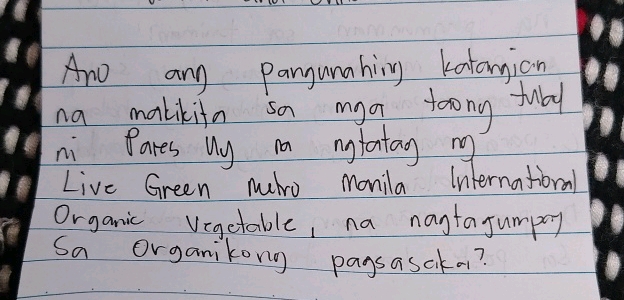 Ano ang pangunahing katangian
na makikita sa mga taong tulad
ni Pares Uy na ngtatag ng
Live Green Metro Manila International
Organic Vegetable, na nagtagumpay
Sa organikong pagsasaka?